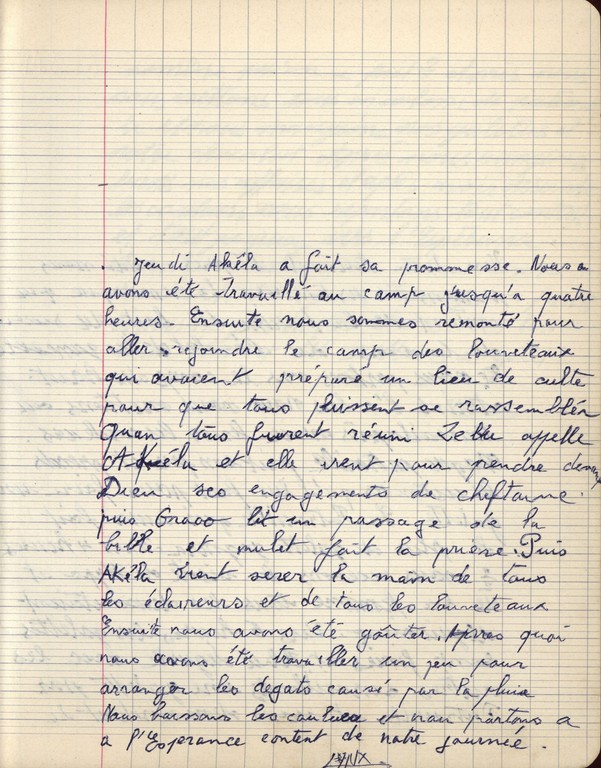 Jeudi Akéla a fait sa prommesse. Nous a
avons été travaillé au camp j'usqu'a quatre
heures. Ensuite nous sommes remonté pour
aller rejoindre le camp des louveteaux
qui avaient préparé un lieu de culte
pour que tous puissent se rassemblér
Quan tous furent réuni Zebu appelle
Akéla et elle vient pour prendre devant
Dieu ses engagements de cheftaine.
puis Graoo lit un passage de la
bible et mulet fait la prière. Puis
AKéla vient serer la main de tous
les éclaireurs et de tous les louveteaux
Ensuite nous avons été goûter. Apres quoi
nous avons été travailler un peu pour
arranger les degats causé par la pluie
Nous baissons les couleurs et nous partons a
a l'Esperance content de notre journée.